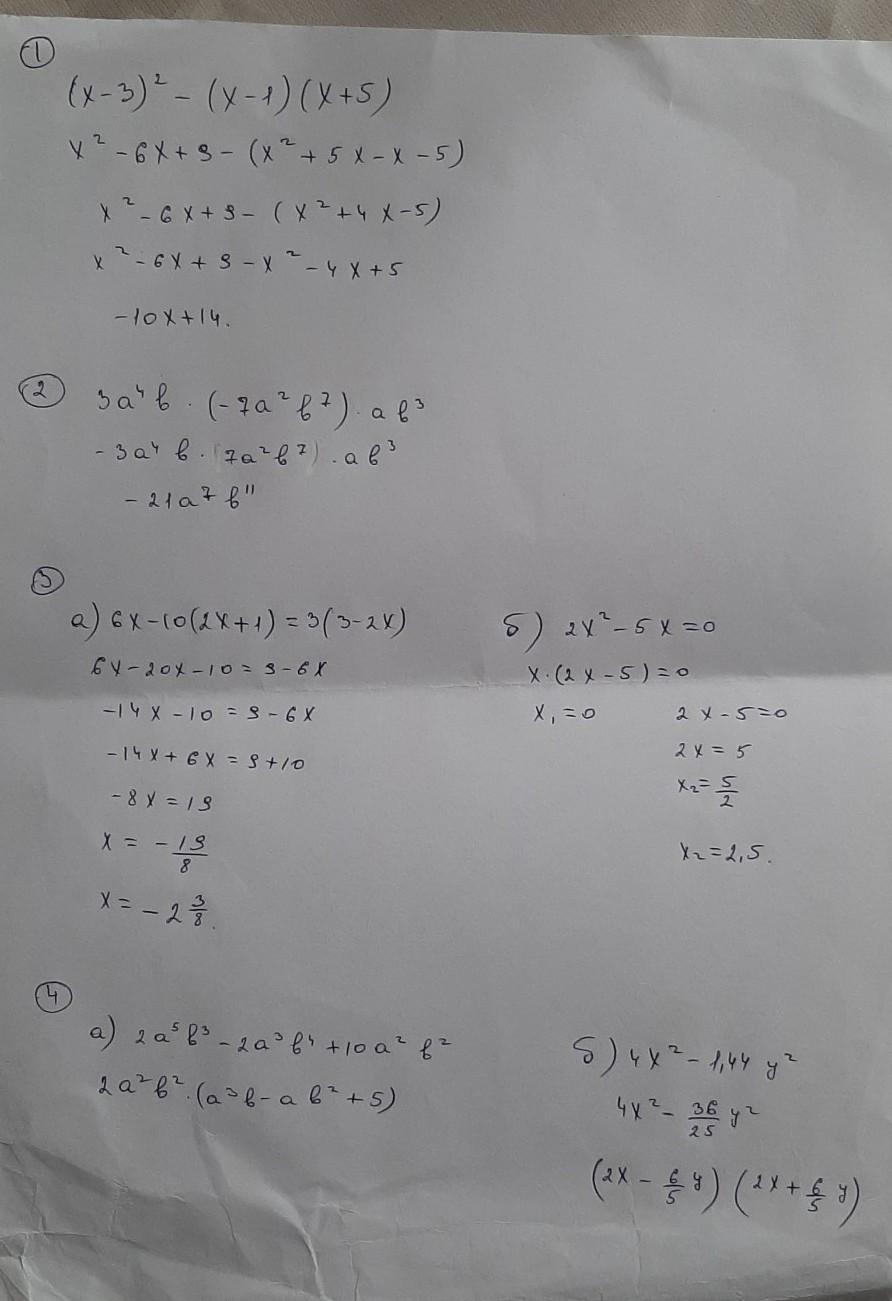 1
(x-3)² - (x-1)(x+5)
x² - 6x + 9 - (x² + 5x - x - 5)
x² - 6x + 9 - (x² + 4x - 5)
x² - 6x + 9 - x² - 4x + 5
-10x + 14.
2
3a⁴b · (-7a²b⁷) · ab³
- 3a⁴b · (7a²b⁷) · ab³
- 21a⁷b¹¹
3
а) 6x - 10(2x+1) = 3(3-2x)
6x - 20x - 10 = 9 - 6x
-14x - 10 = 9 - 6x
-14x + 6x = 9 + 10
-8x = 19
x = - 19/8
x = - 2 3/8.
б) 2x² - 5x = 0
x · (2x - 5) = 0
x₁ = 0 2x - 5 = 0
2x = 5
x₂ = 5/2
x₂ = 2,5.
4
а) 2a⁵b³ - 2a³b⁴ + 10a²b²
2a²b² · (a³b - ab² + 5)
б) 4x² - 1,44y²
4x² - 36/25 y²
(2x - 6/5 y) (2x + 6/5 y)